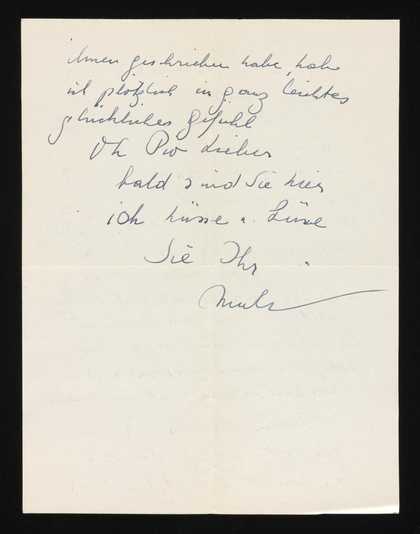 ihnen geschrieben habe, habe
ich plötzlich ein ganz leichtes
glückliches Gefühl
Oh Pio Lieber
bald sind Sie hier
ich küsse u. küsse
Sie Ihr